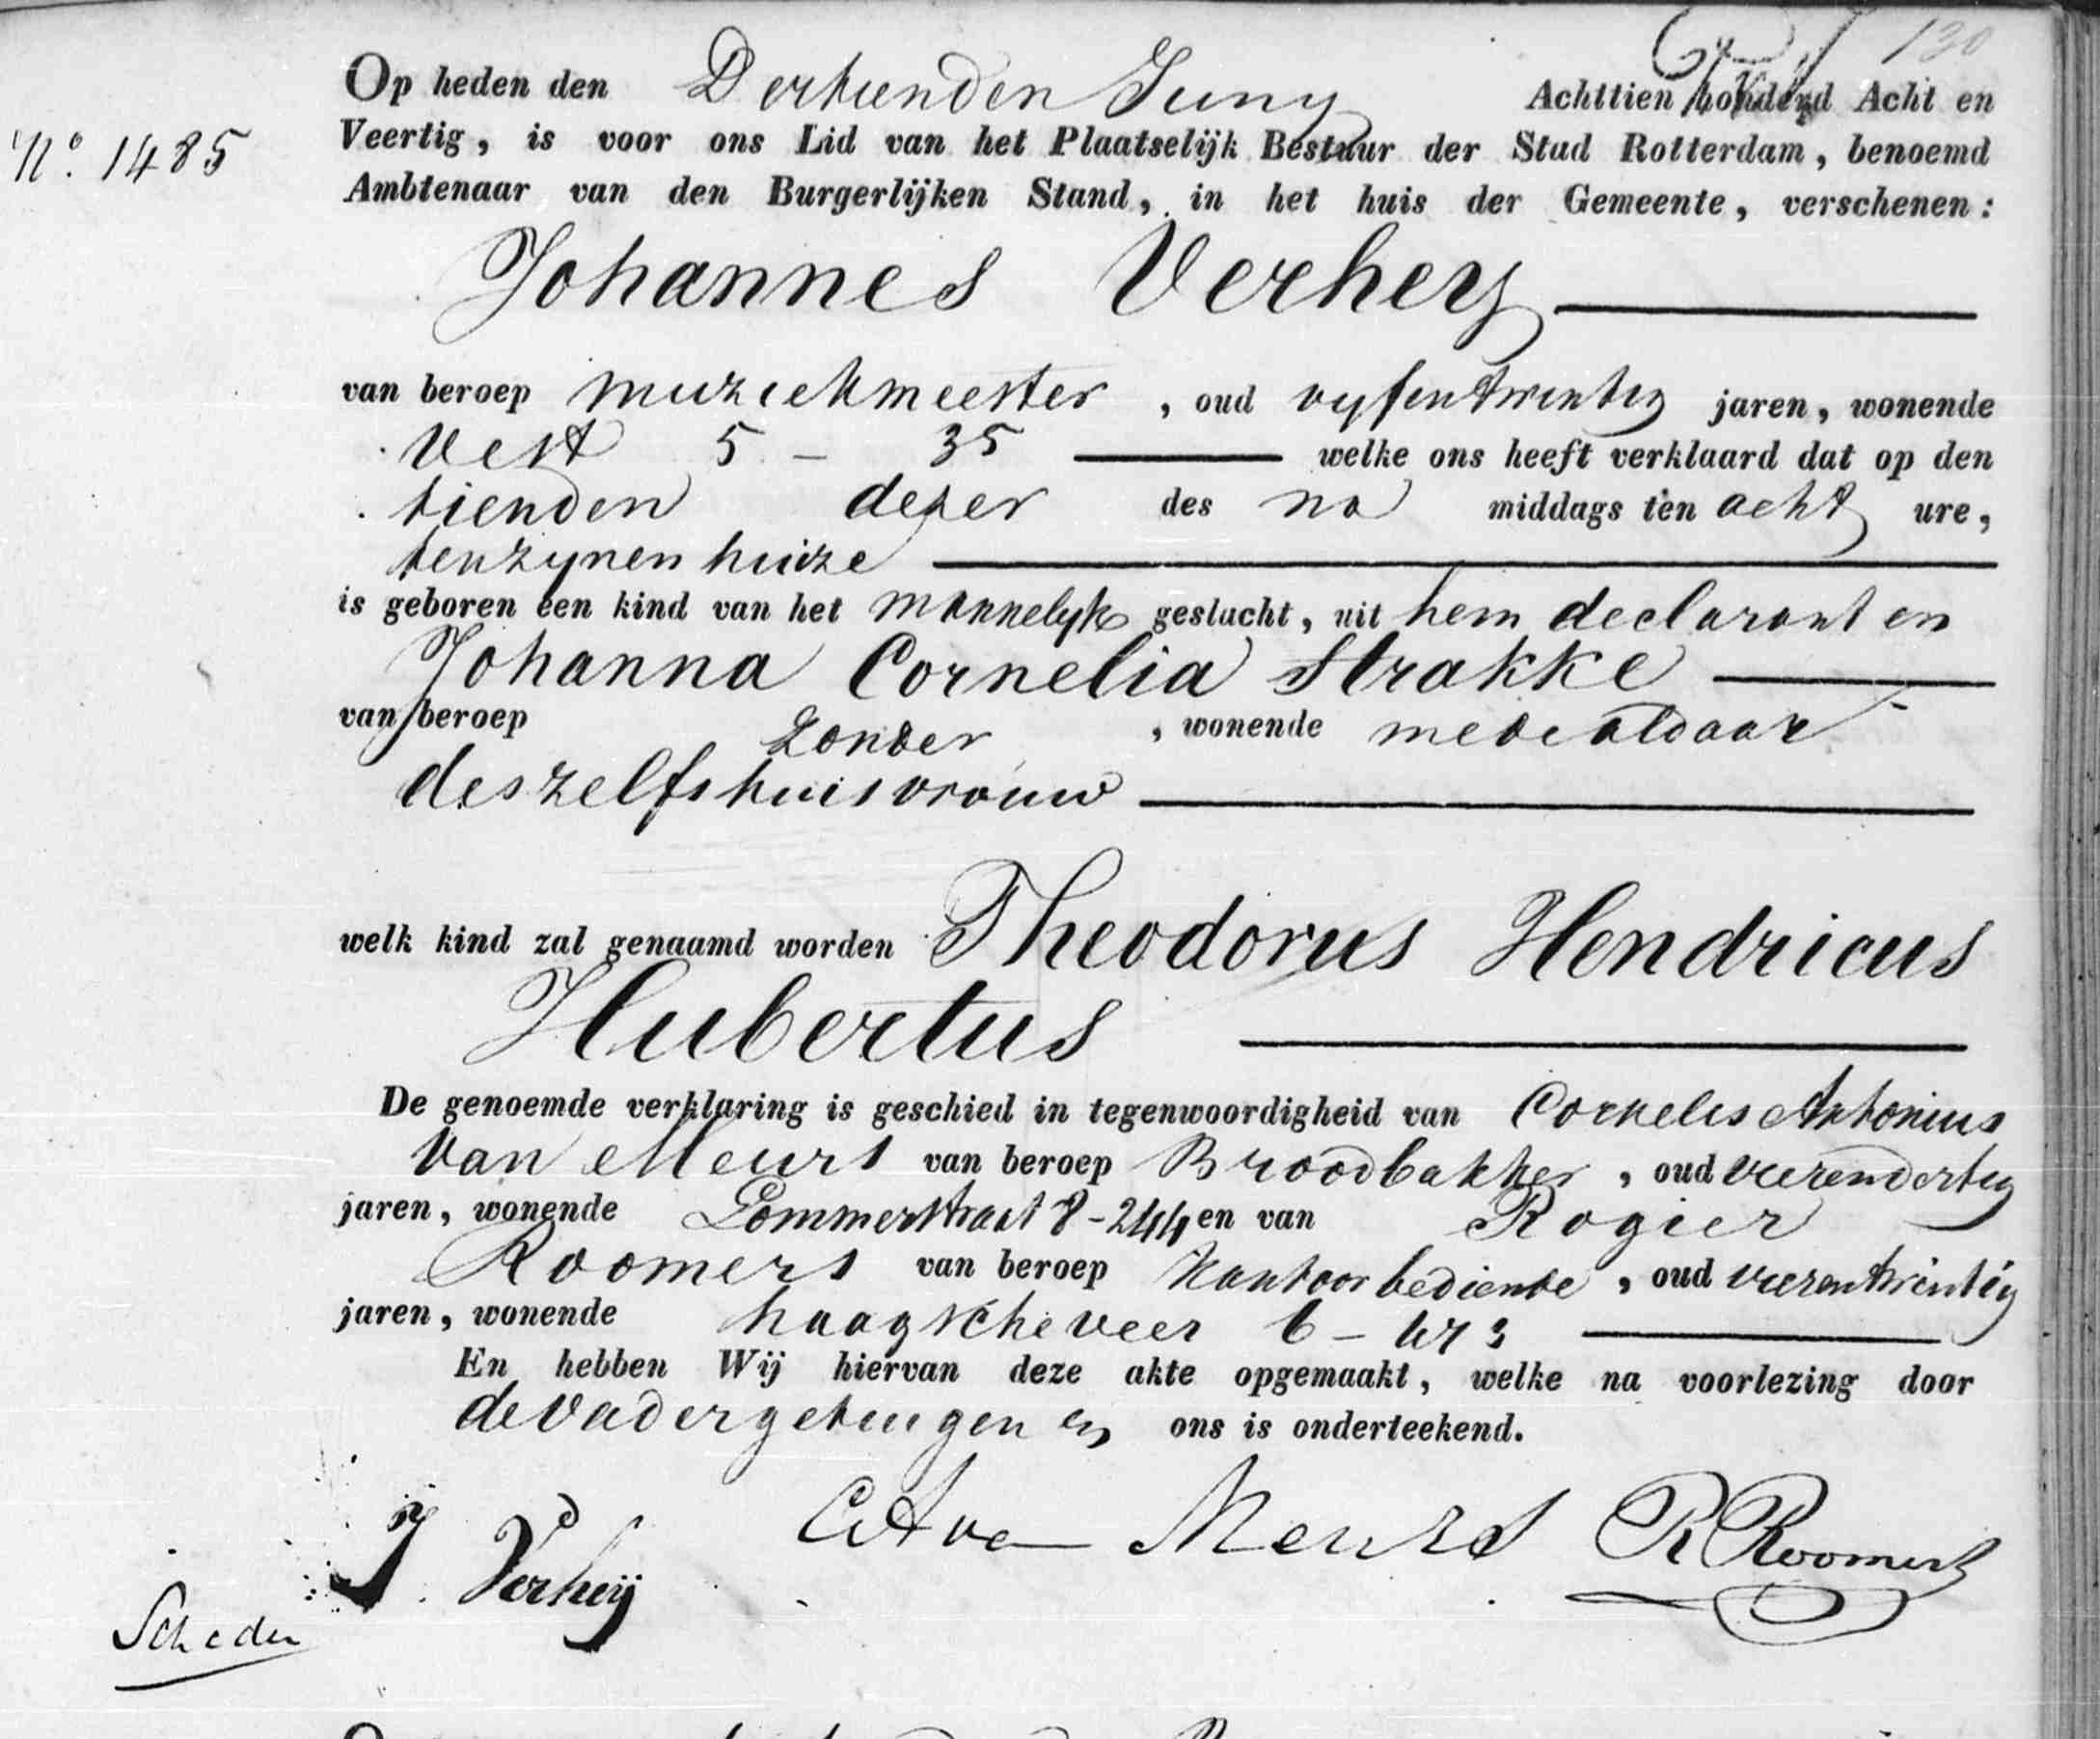 130
Op heden den Dertienden Juny Achttien honderd Acht en
No. 1485
Veertig, is voor ons Lid van het Plaatselijk Bestuur der Stad Rotterdam, benoemd
Ambtenaar van den Burgerlijken Stand, in het huis der Gemeente, verschenen:
Johannes Verhey
van beroep muziekmeester, oud vyfentwintig jaren, wonende
Vest 5 - 35 welke ons heeft verklaard dat op den
tienden dezer des na middags ten acht ure,
ten zynen huize
is geboren een kind van het mannelyk geslacht, uit hem declarant en
Johanna Cornelia Strakke
van beroep zonder, wonende mede aldaar
deszelfs huisvrouw
welk kind zal genaamd worden Theodorus Hendricus
Hubertus
De genoemde verklaring is geschied in tegenwoordigheid van Cornelis Antonius
van Meurs van beroep Broodbakker, oud vierendertig
jaren, wonende Lommerstraat 8-244 en van Rogier
Roomers van beroep Kantoorbediende, oud vierentwintig
jaren, wonende haagscheveer 6 -
En hebben Wij hiervan deze akte opgemaakt, welke na voorlezing door
de Vader getuigen en ons is onderteekend.
J. Verheij CA van Meurs R Roomers